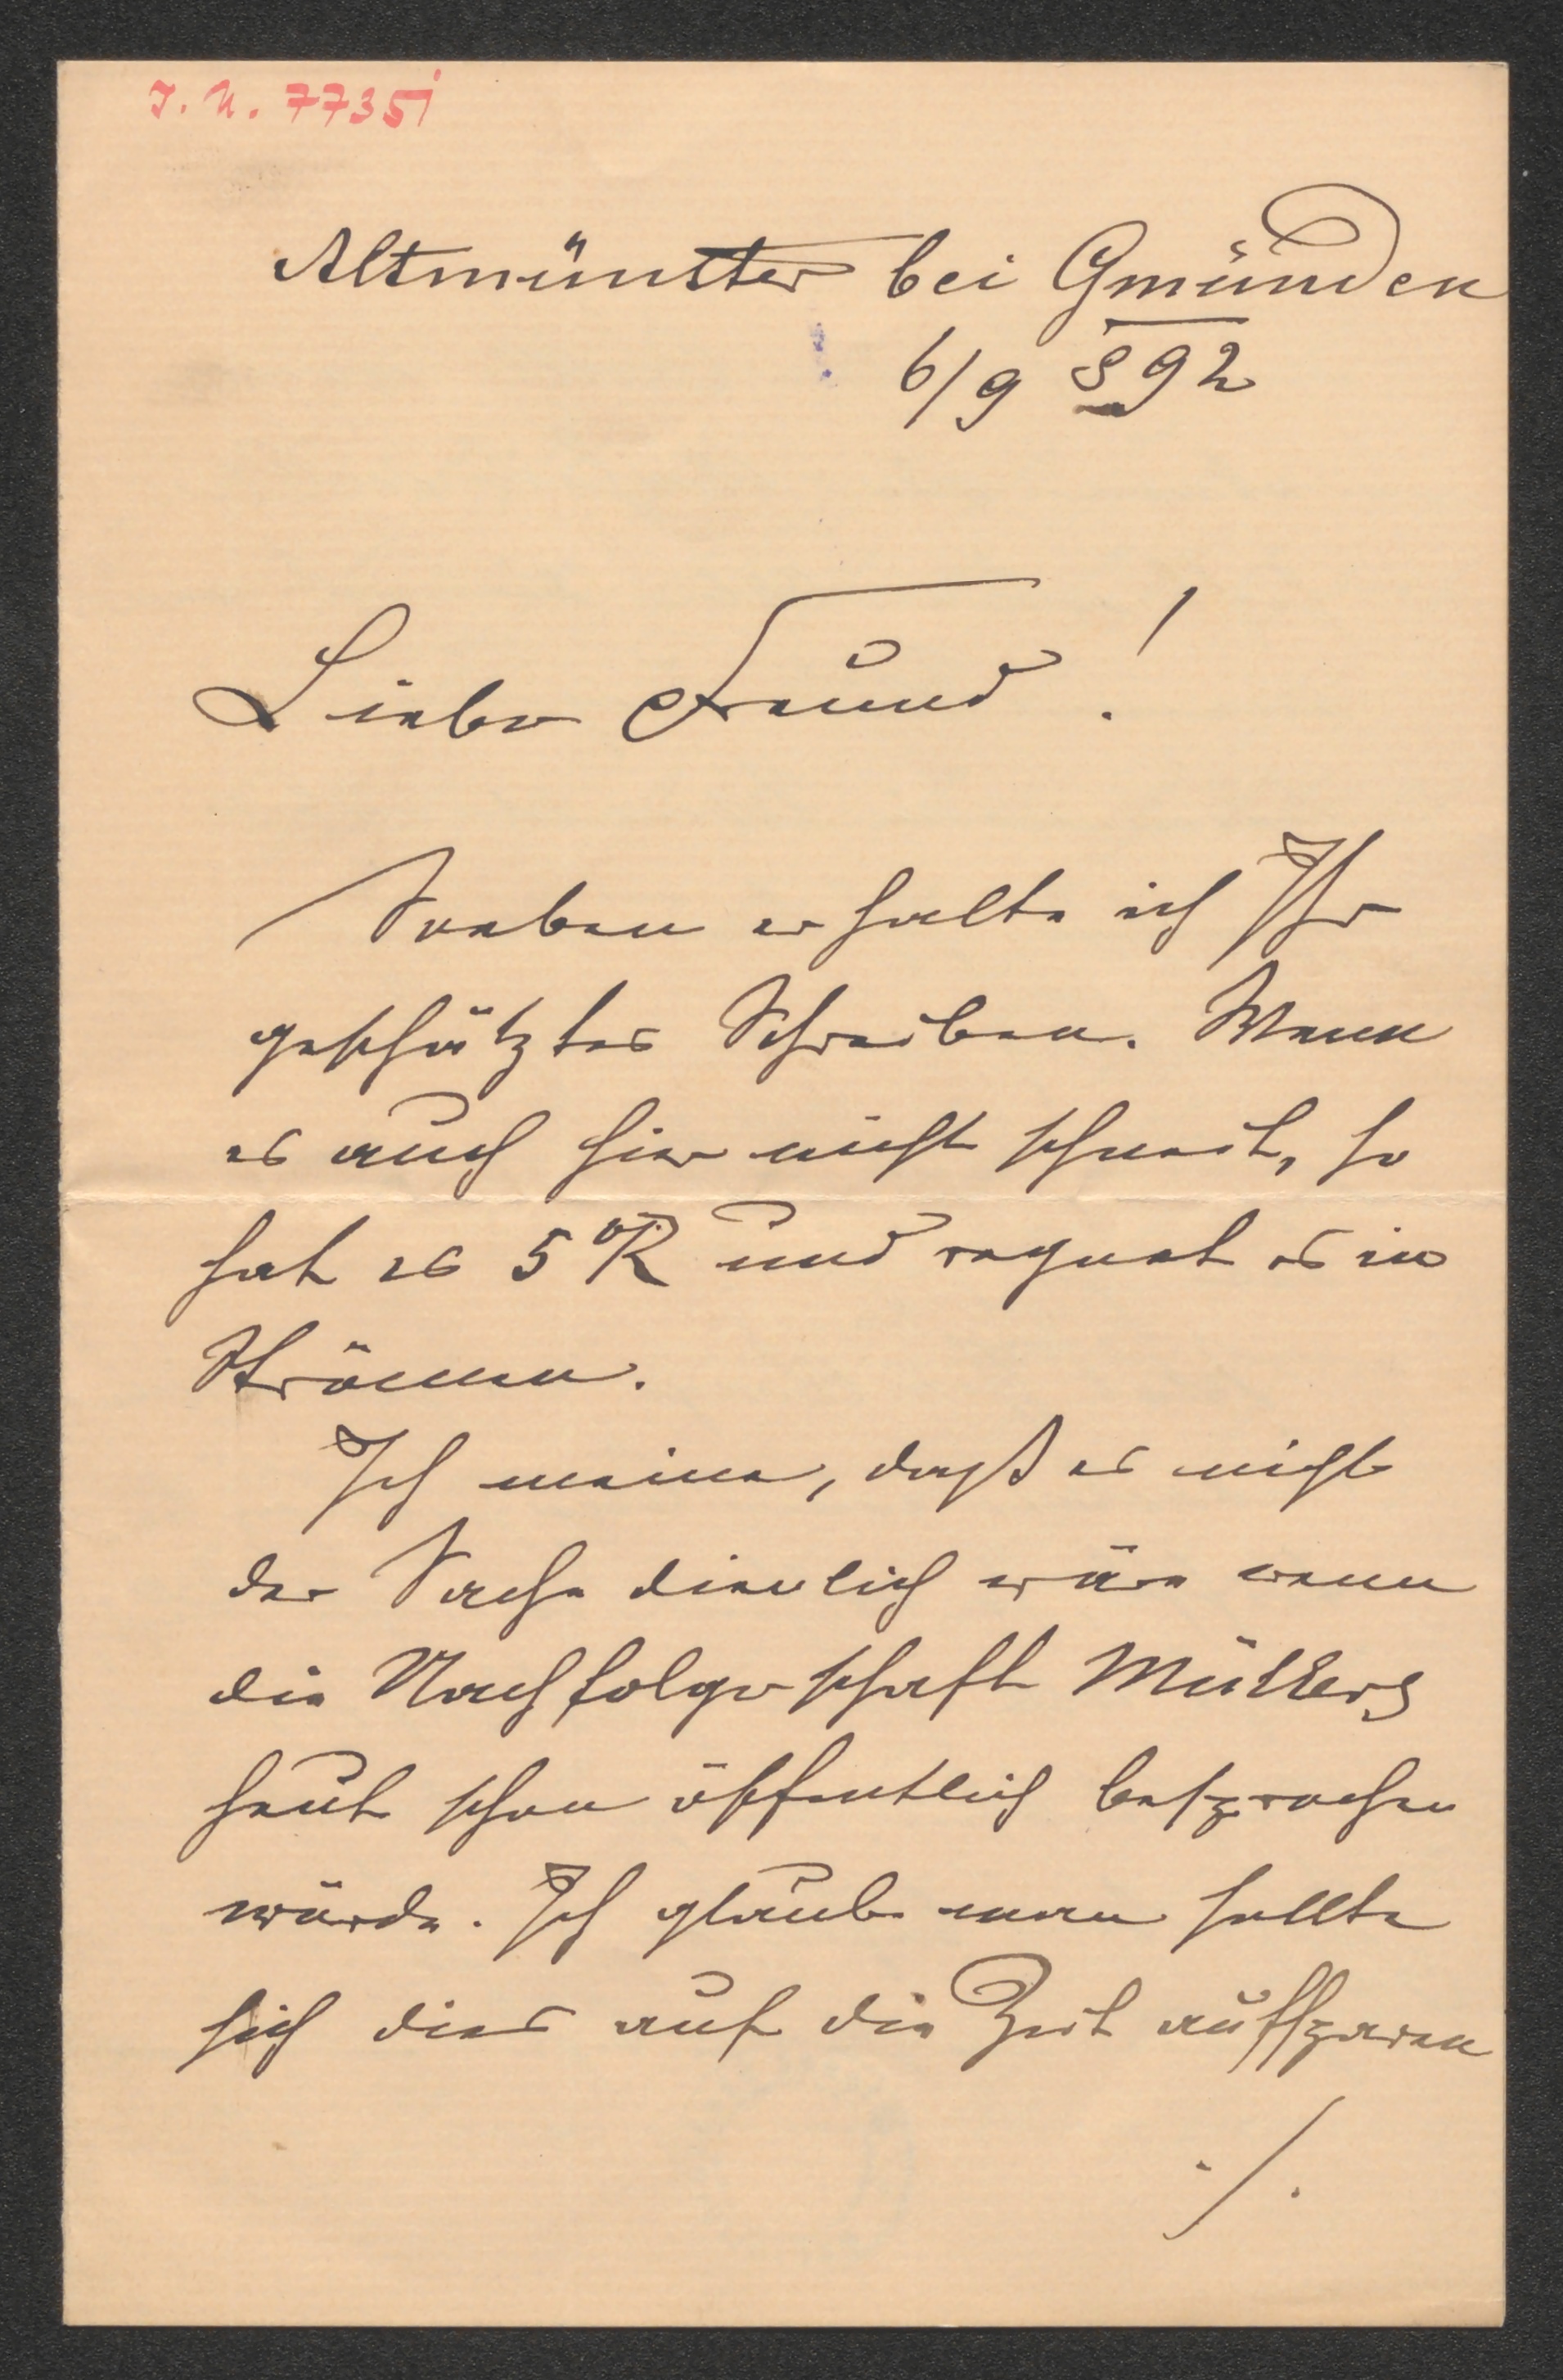 J. N. 77351
Altmünster bei Gmünden
6/9 892
Lieber Freund!
Soeben erhalte ich Ihr
geschätztes Schreiben. Wenn
es auch hier nicht schneit, so
hat es 5°R und regnet es in
Strömen.
Ich meine, daß es nicht
der Sache dienlich wäre wenn
die Nachfolgerschaft Müllers
heut schon öffentlich besprochen
würde. Ich glaube man sollte
sich dies auf die Zeit aufsparen
./.